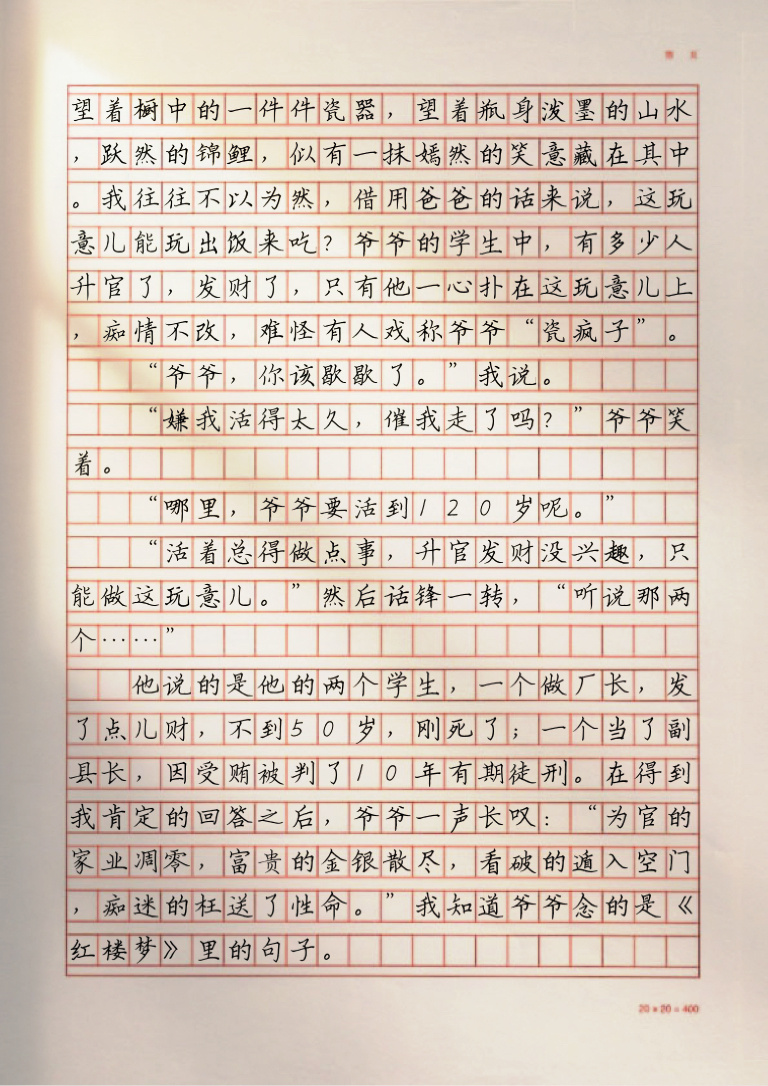 望着橱中的一件件瓷器，望着瓶身泼墨的山水
，跃然的锦鲤，似有一抹嫣然的笑意藏在其中
。我往往不以为然，借用爸爸的话来说，这玩
意儿能玩出饭来吃？爷爷的学生中，有多少人
升官了，发财了，只有他一心扑在这玩意儿上
，痴情不改，难怪有人戏称爷爷“瓷疯子”。
“爷爷，你该歇歇了。”我说。
“嫌我活得太久，催我走了吗？”爷爷笑
着。
“哪里，爷爷要活到120岁呢。”
“活着总得做点事，升官发财没兴趣，只
能做这玩意儿。”然后话锋一转，“听说那两
个……”
他说的是他的两个学生，一个做厂长，发
了点儿财，不到50岁，刚死了；一个当了副
县长，因受贿被判了10年有期徒刑。在得到
我肯定的回答之后，爷爷一声长叹：“为官的
家业凋零，富贵的金银散尽，看破的遁入空门
，痴迷的枉送了性命。”我知道爷爷念的是《
红楼梦》里的句子。
20×20=400